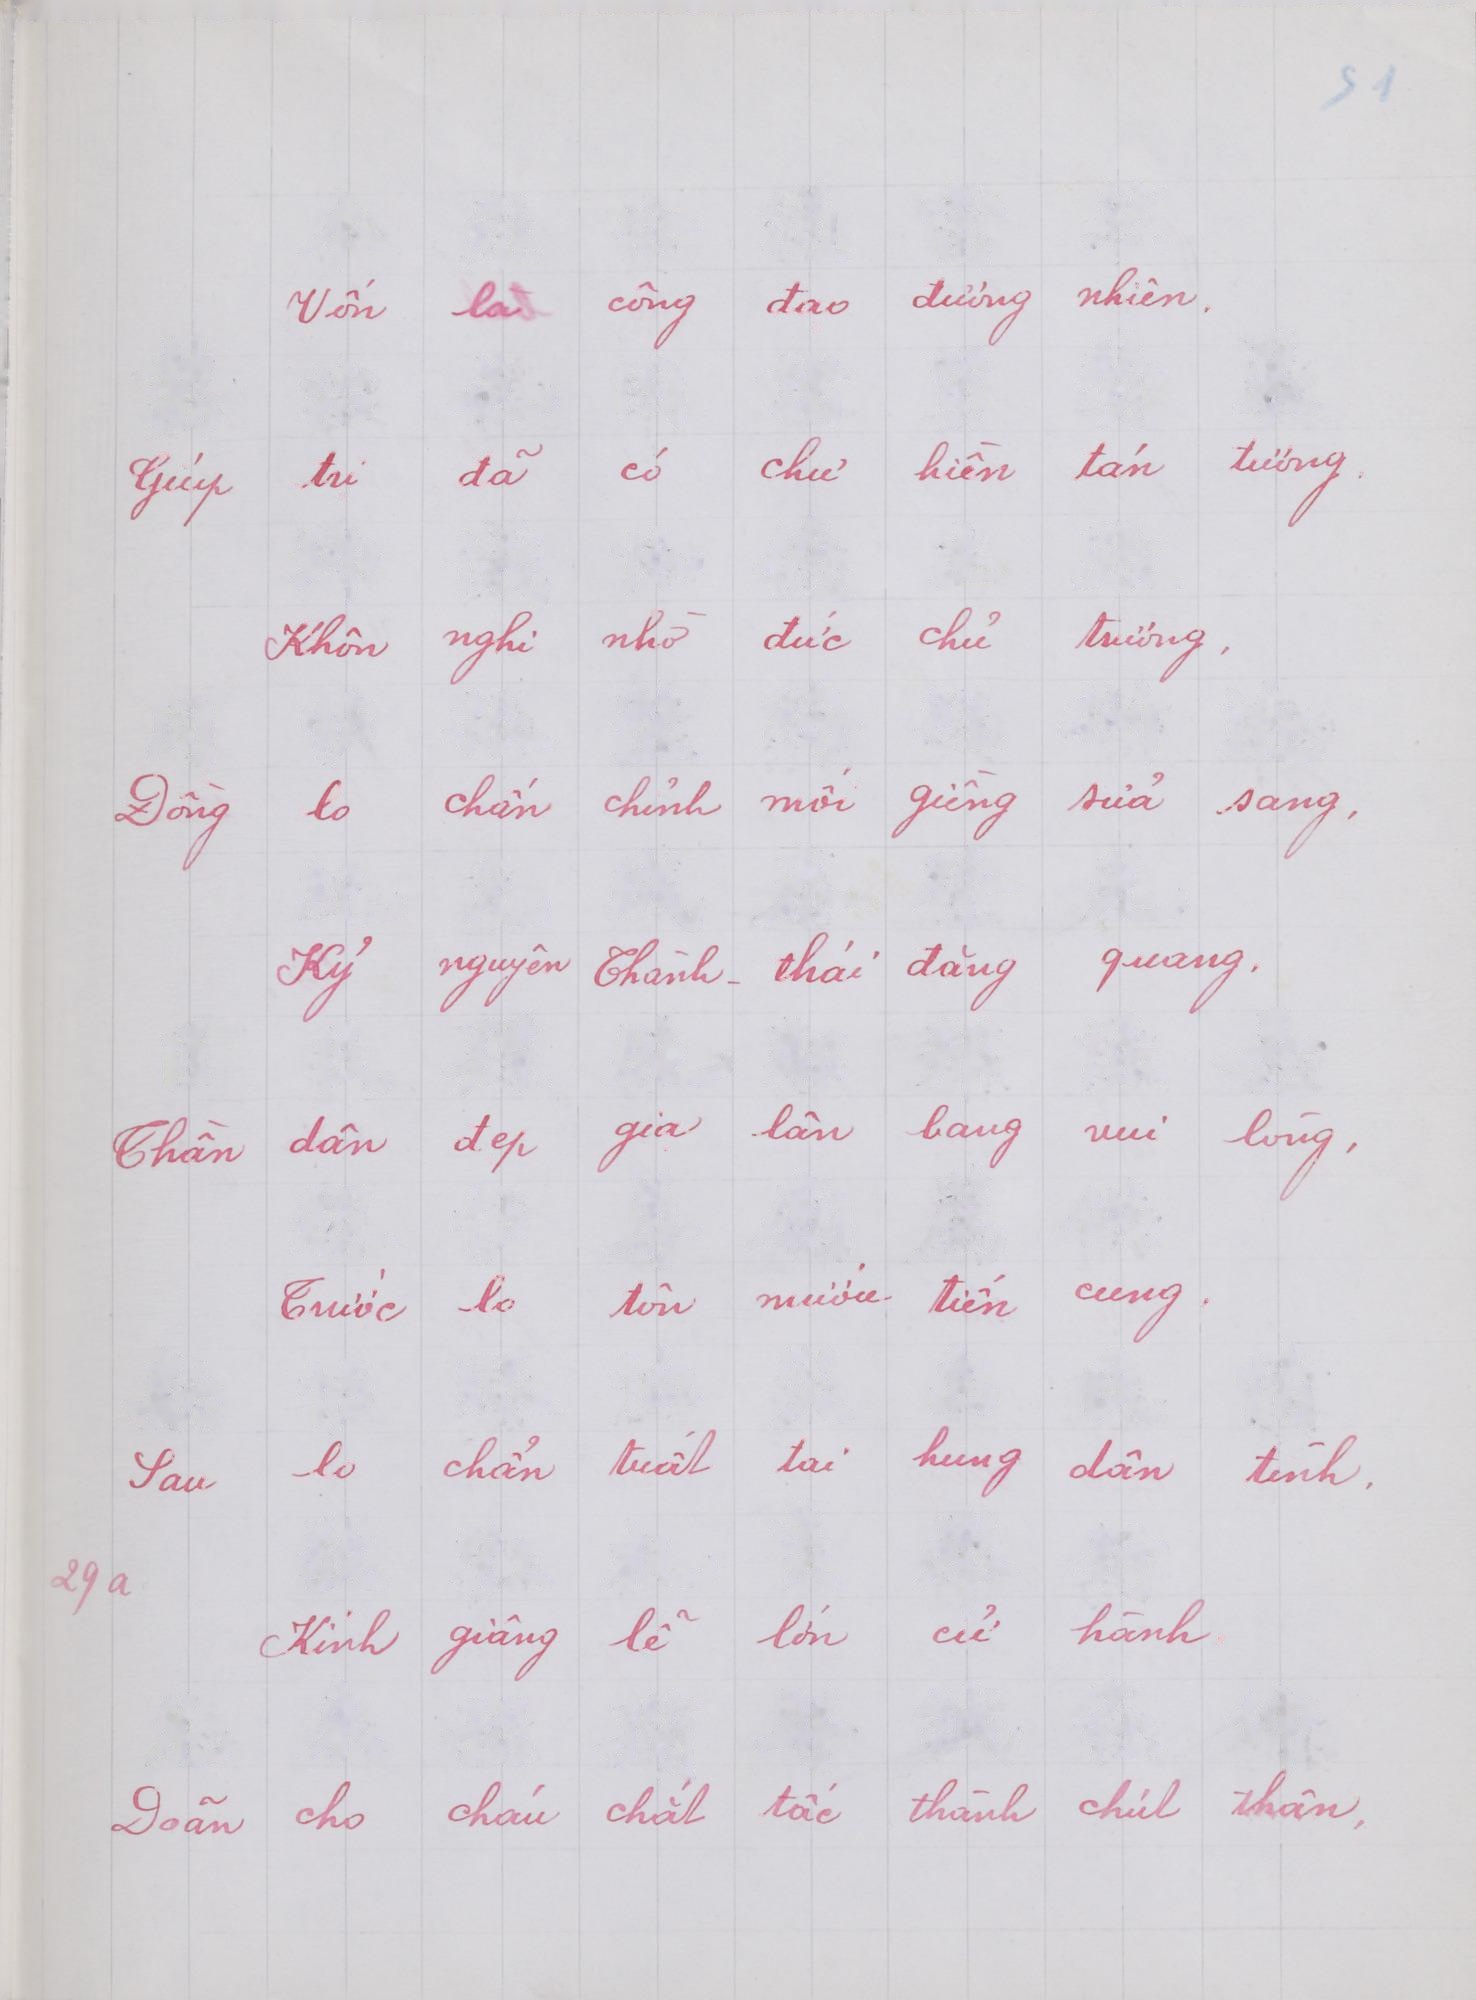 51
Vốn là công đạo đương nhiên.
Giúp trị đã có chư hiền tán tương.
Khôn nghi nhờ đức chủ trương,
Đồng lo chấn chỉnh mối giềng sửa sang,
Kỷ nguyên Thành-thái đặng quang.
Thần dân đẹp giạ lân bang vui lòng,
Trước lo tôn miếu tiến cung.
Sau lo chẩn tuất tai hung dân tình.
29a
Kính giâng lễ lớn cử hành
Doãn cho cháu chắt tấc thành chút thân,